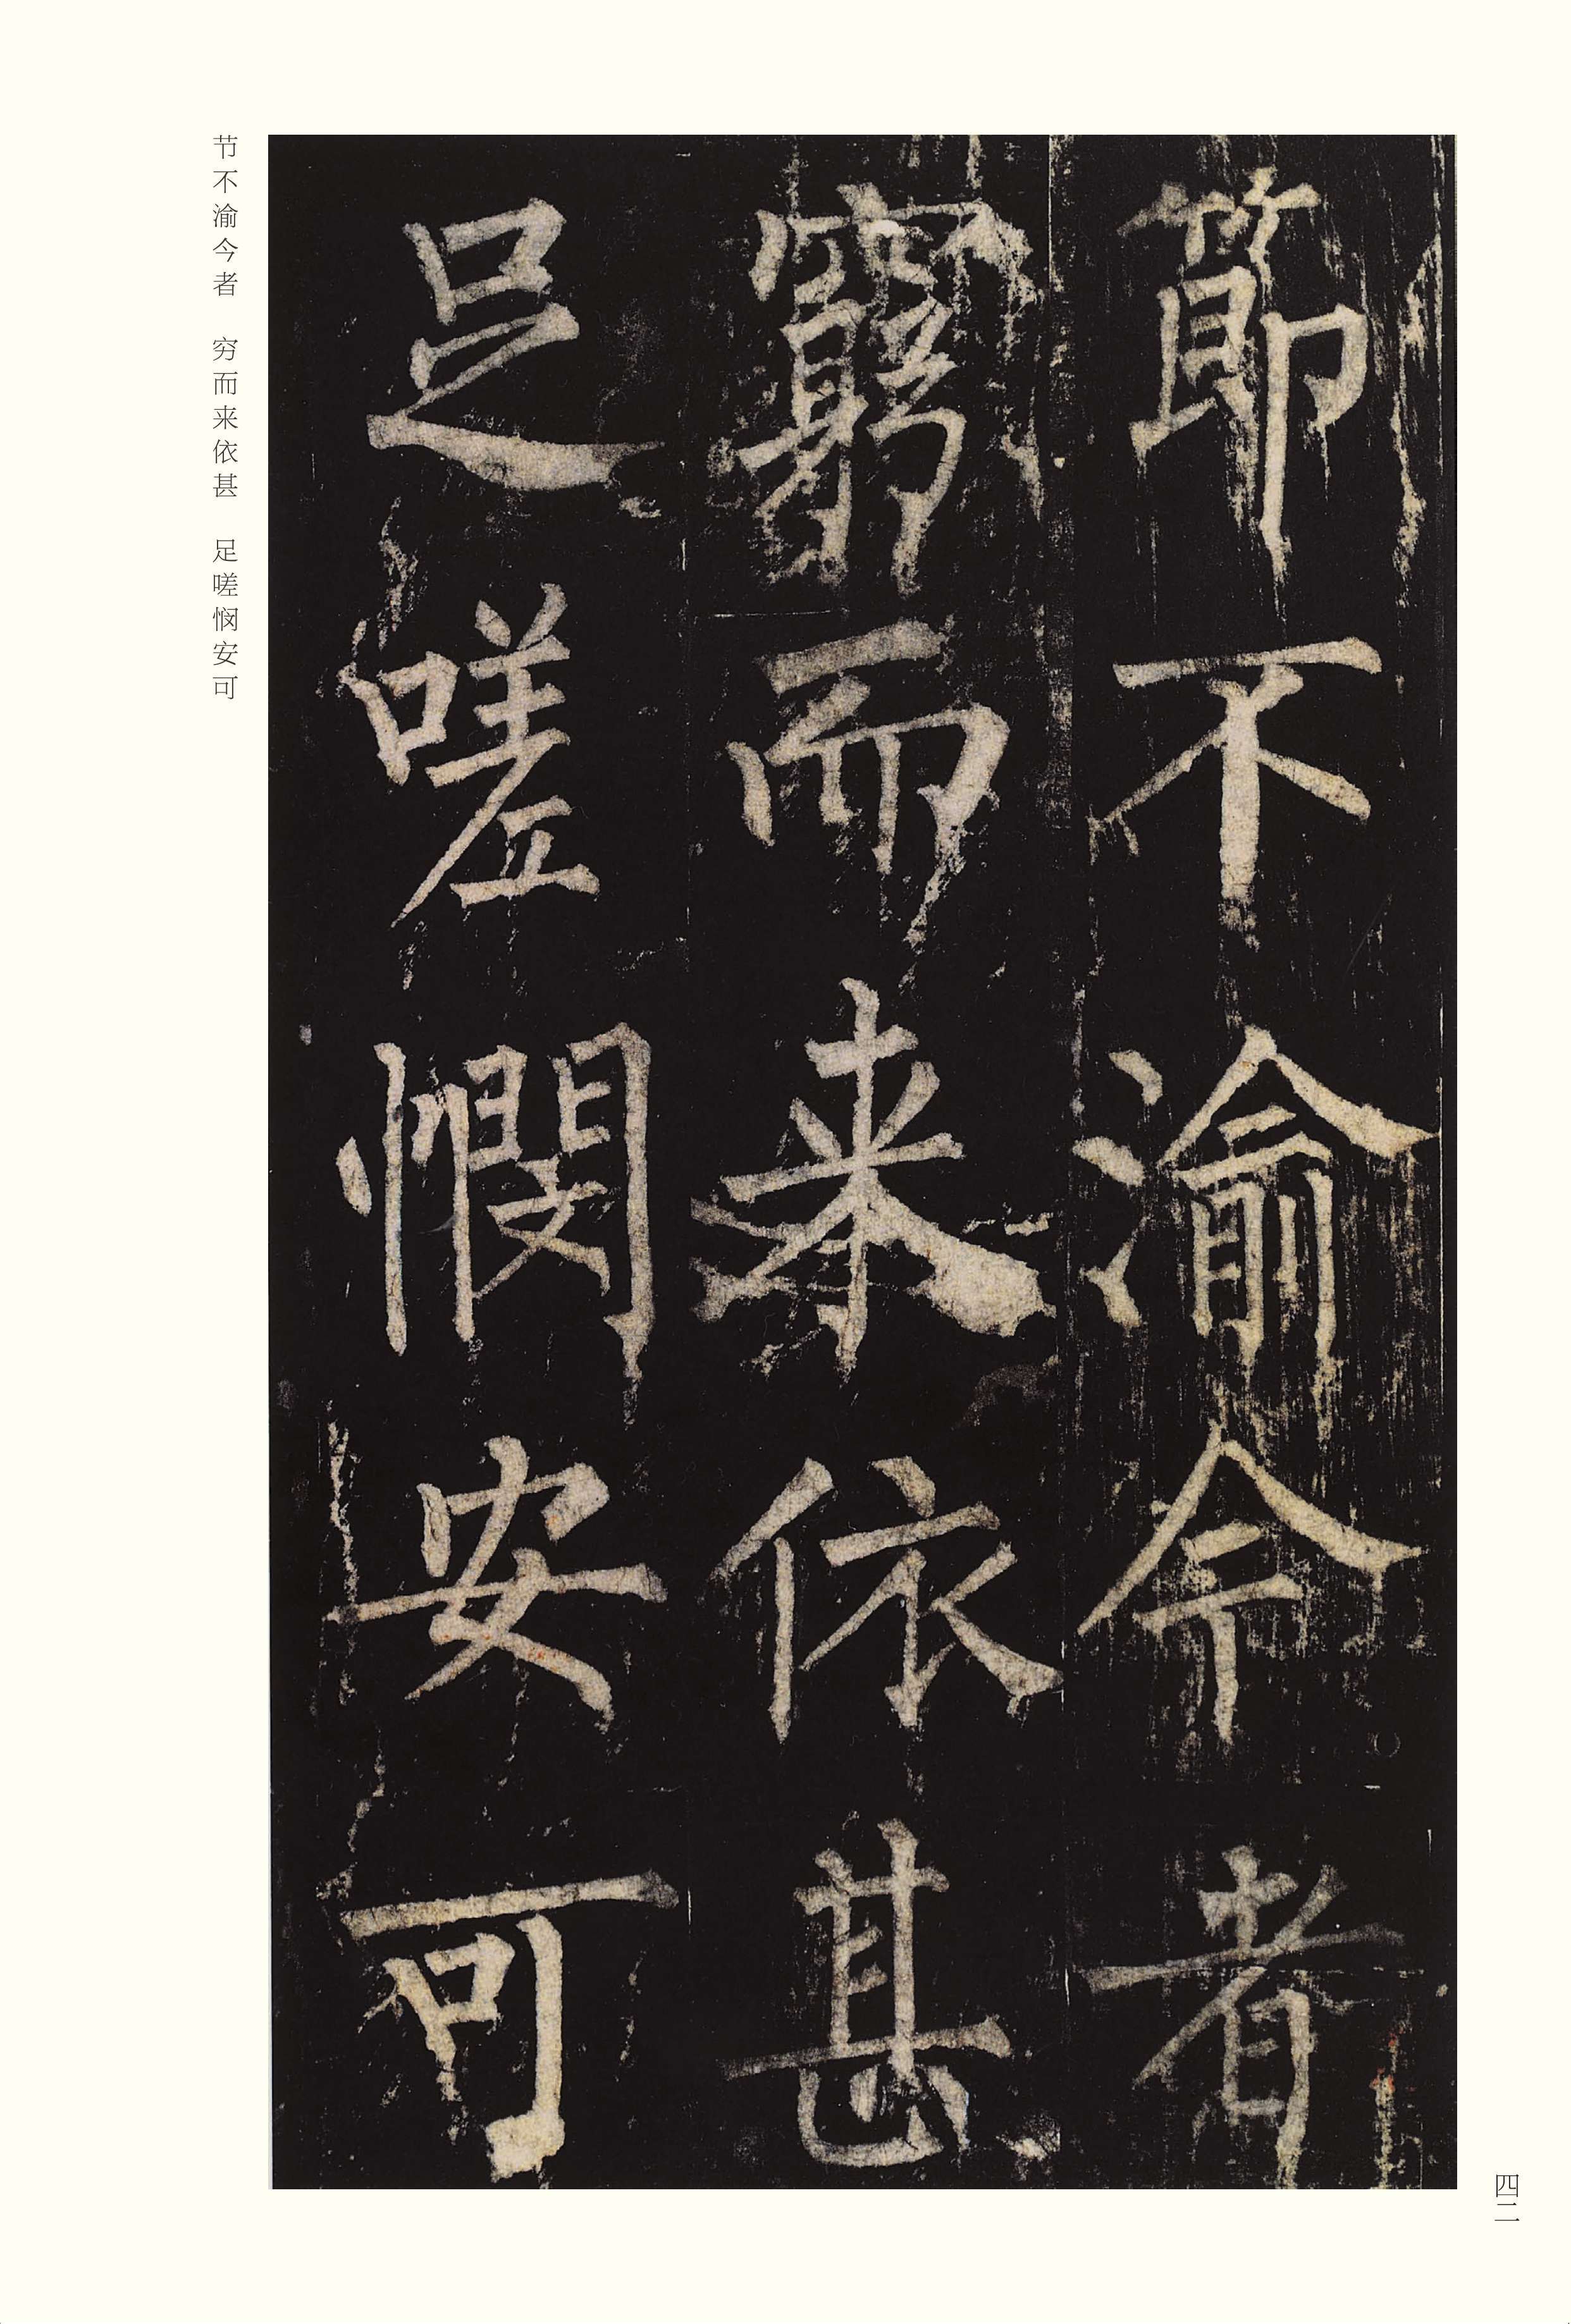 節不渝今者
窮而来依甚
足嗟憫安可
节不渝今者 穷而来依甚 足嗟悯安可
四二